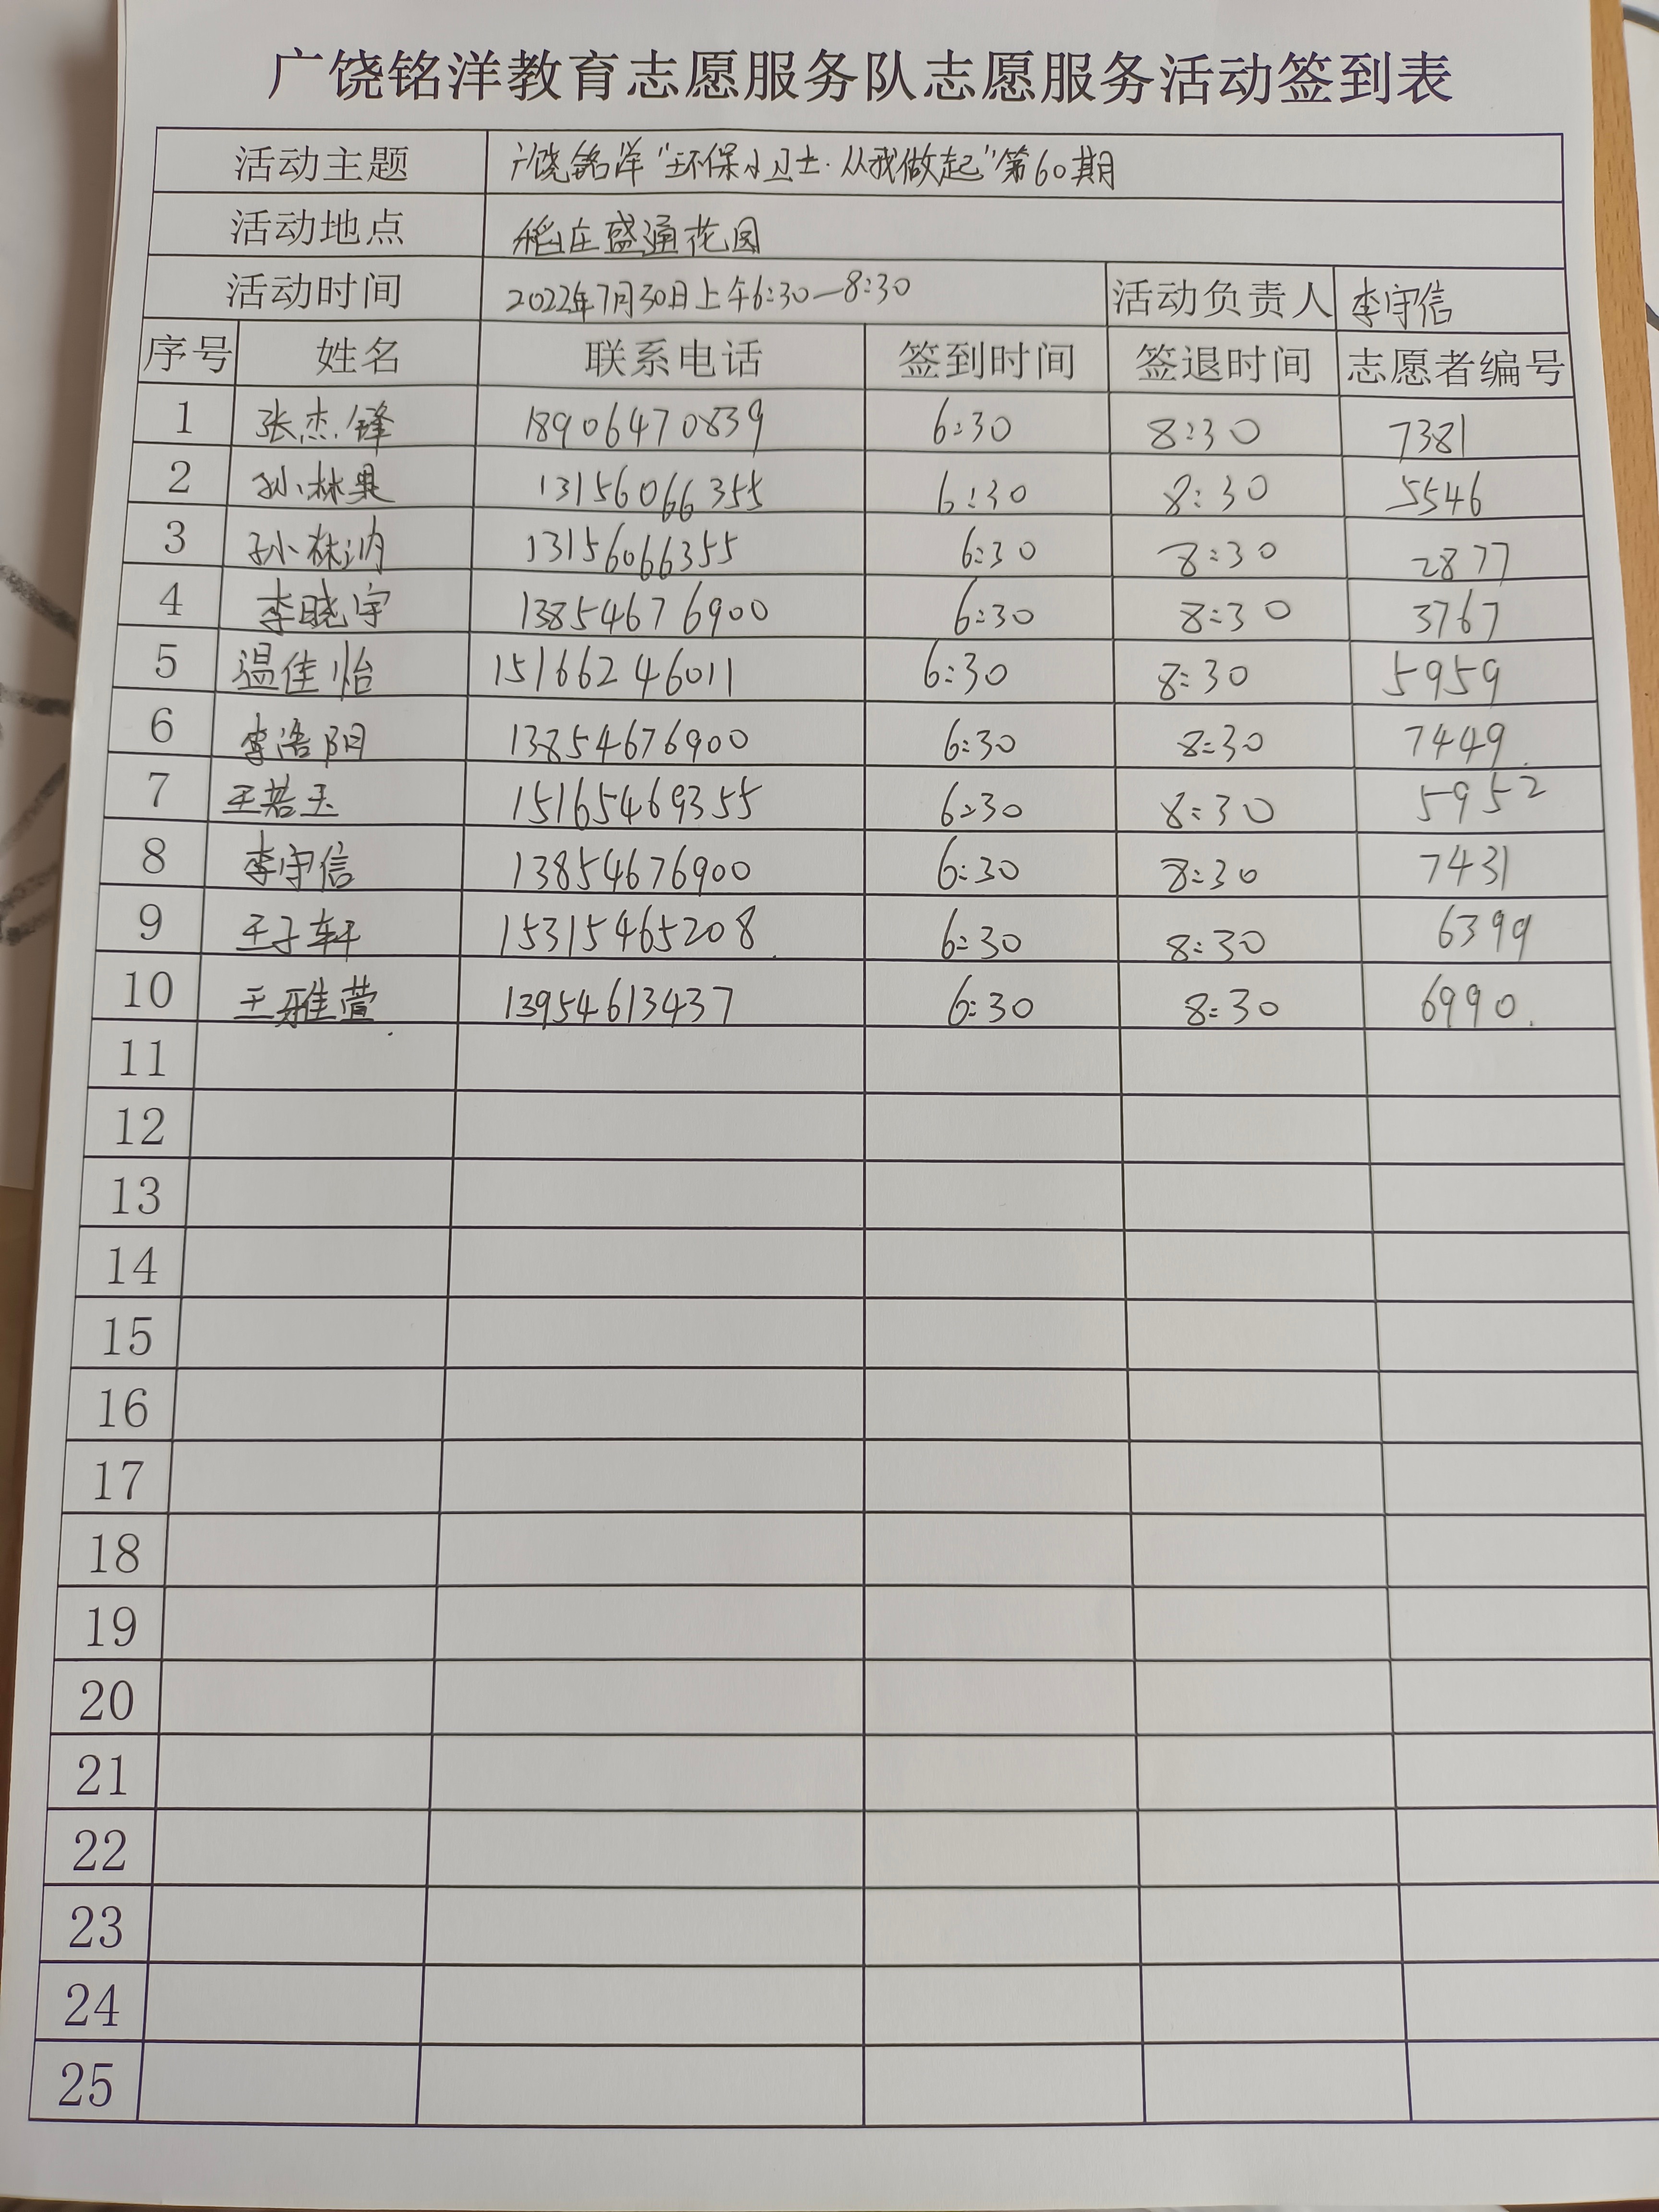 广饶铭洋教育志愿服务队志愿服务活动签到表
活动主题 广饶铭洋“环保小卫士·从我做起”第60期
活动地点 稻庄盛通花园
活动时间 2022年7月30日上午6:30—8:30 活动负责人 李守信
序号 姓名 联系电话 签到时间 签退时间 志愿者编号
1 张杰锋 18906470839 6:30 8:30 7381
2 孙林果 13156066355 6:30 8:30 5546
3 孙林汭 13156066355 6:30 8:30 2877
4 李晓宇 13854676900 6:30 8:30 3767
5 温佳怡 15166246011 6:30 8:30 5959
6 李浩阳 13854676900 6:30 8:30 7449
7 王若玉 15165469355 6:30 8:30 5952
8 李守信 13854676900 6:30 8:30 7431
9 王子轩 15315465208 6:30 8:30 6399
10 王雅萱 13954613437 6:30 8:30 6990.
11
12
13
14
15
16
17
18
19
20
21
22
23
24
25